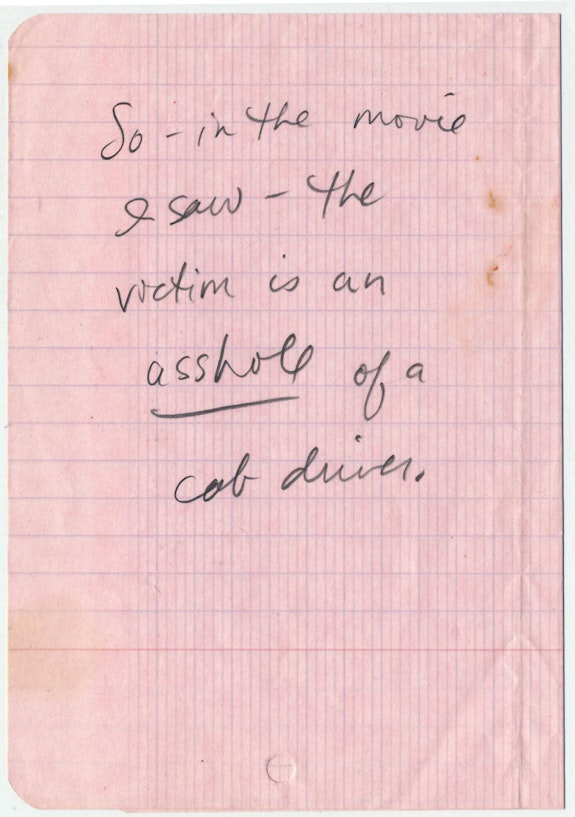 So - in the movie
I saw - the
victim is an
asshole of a
cab driver.